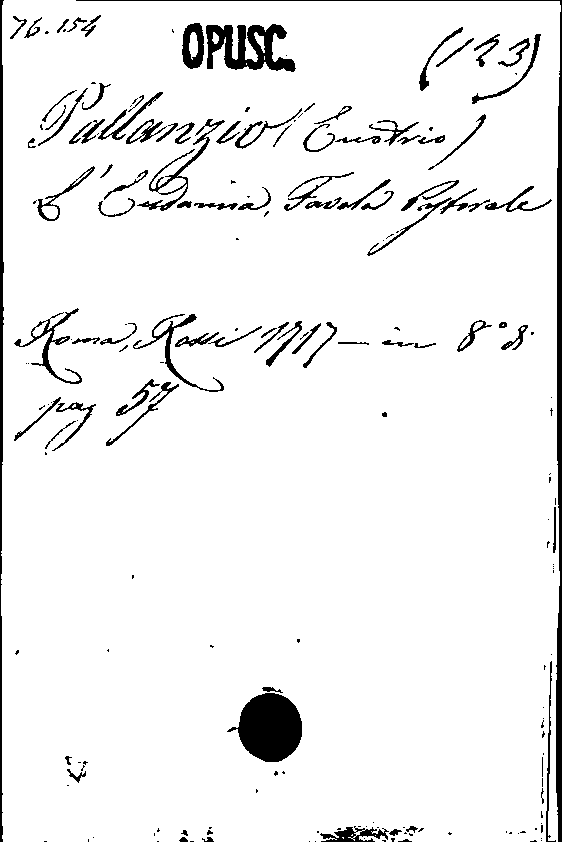 76.154 OPUSC. (123)
Pallanzio (Eustrio)
L'Eudamia, Favola Pastorale
Roma, Rossi 1717 — in 8° 8.
pag 57